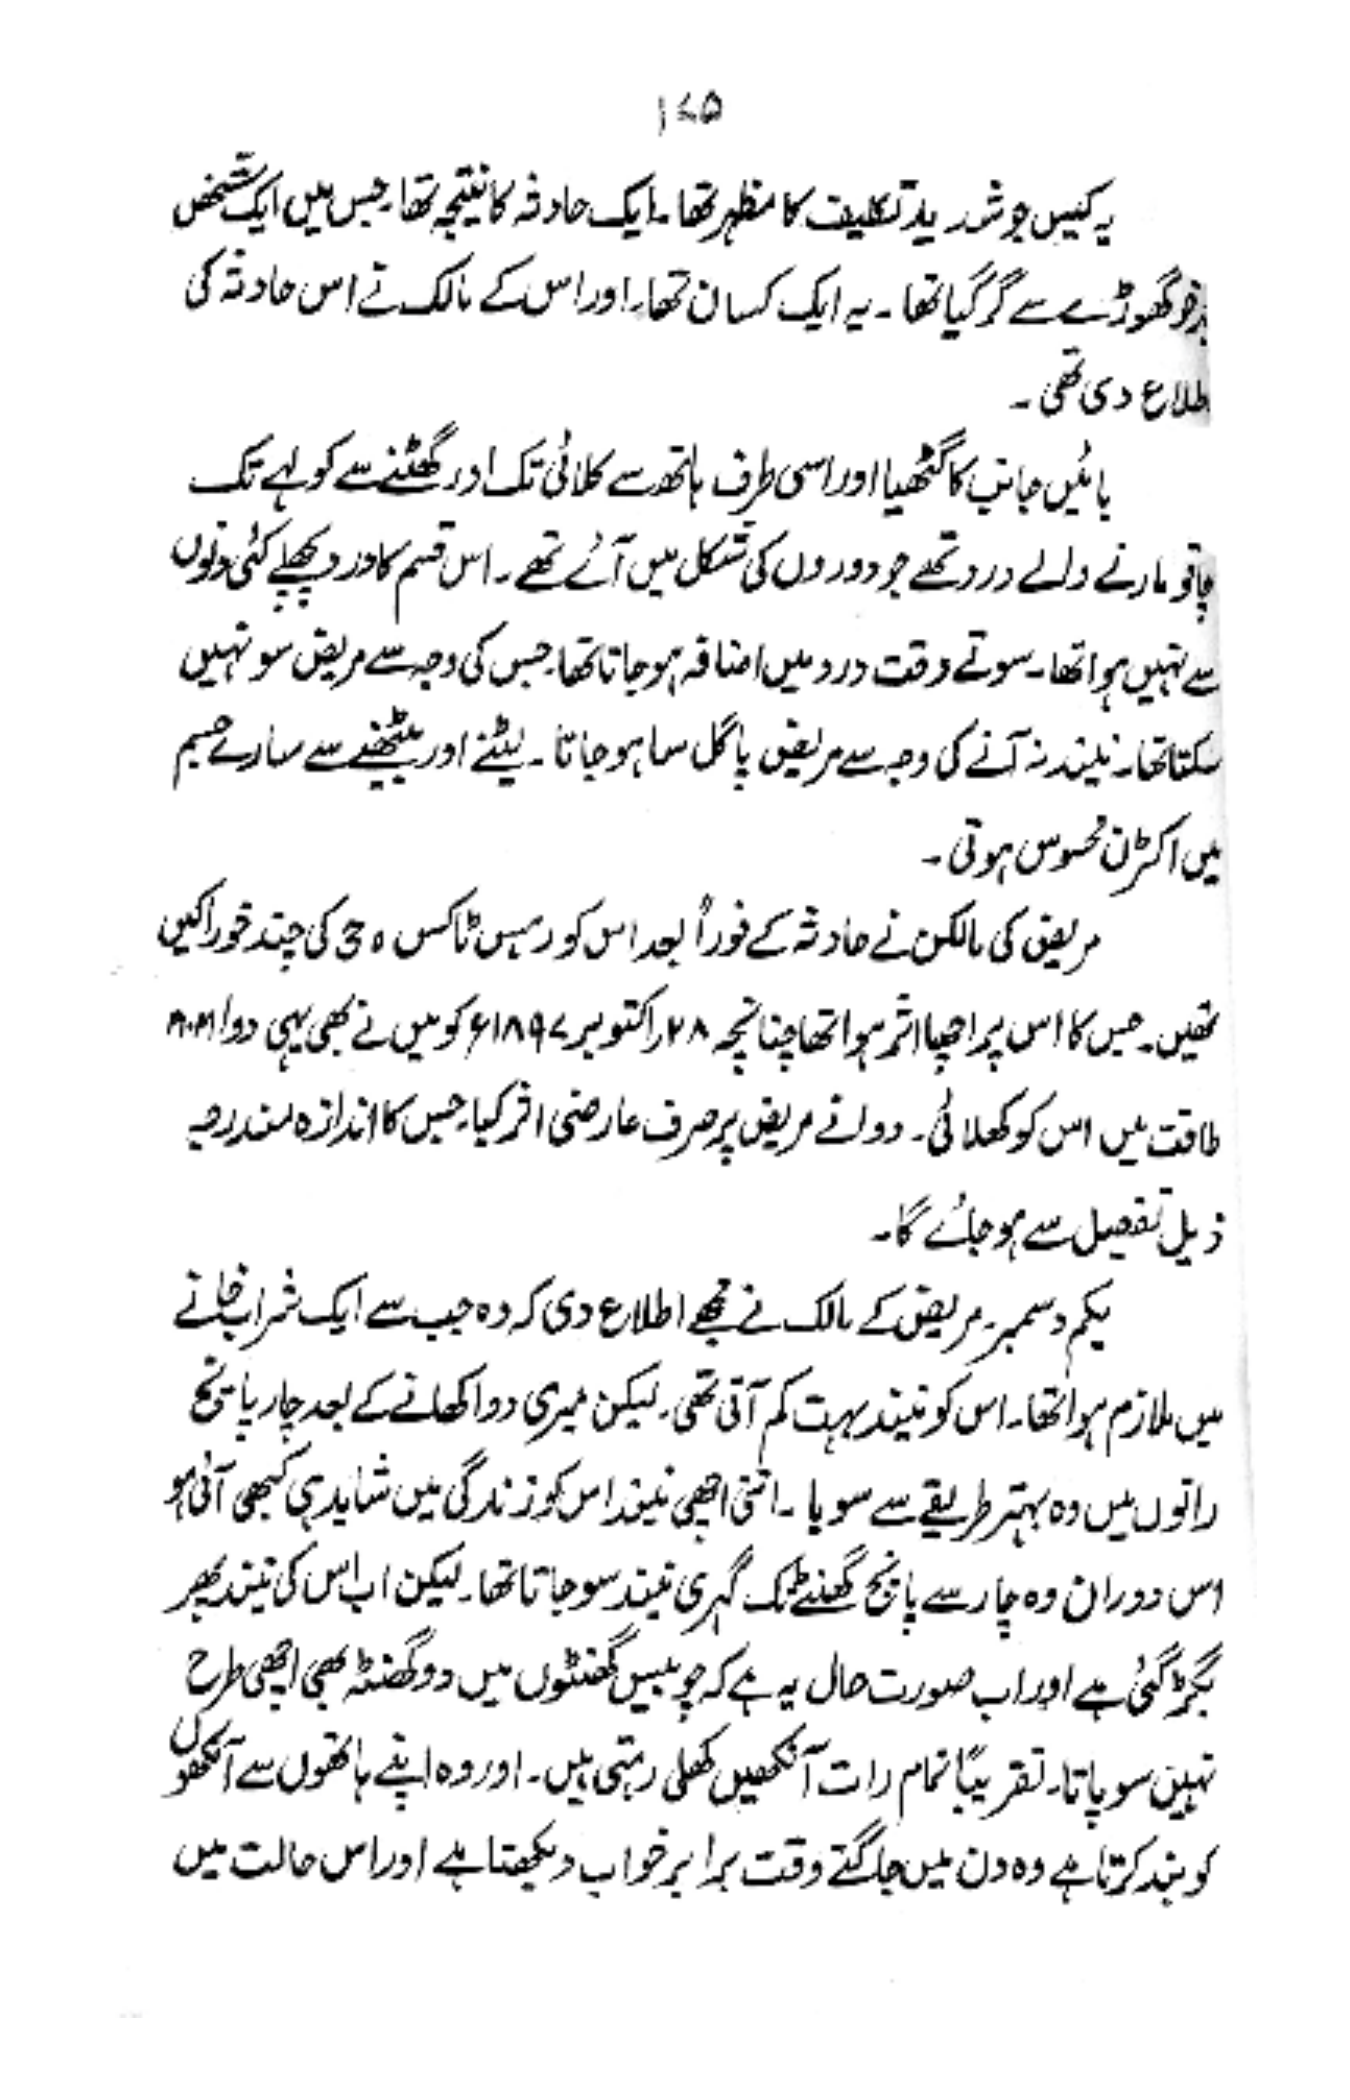 ۱۷۵
یہ کیس جو شدید تکلیف کا مظہر تھا۔ ایک حادثہ کا نتیجہ تھا۔ جس میں ایک شخص
گھوڑے سے گر گیا تھا۔ یہ ایک کسان تھا۔ اور اس کے مالک نے اس حادثہ کی
طلاع دی تھی۔
بائیں جانب کا گٹھیا اور اسی طرف ہاتھ سے کلائی تک اور گھٹنے سے کولہے تک
چاقو مارنے والے درد تھے جو دوروں کی شکل میں آئے تھے۔ اس قسم کا درد پچھلے کئی دنوں
سے نہیں ہوا تھا۔ سوتے وقت درد میں اضافہ ہو جاتا تھا۔ جس کی وجہ سے مریض سو نہیں
سکتا تھا۔ نیند نہ آنے کی وجہ سے مریض پاگل سا ہو جاتا۔ لیٹنے اور بیٹھنے سے سارے جسم
میں اکڑان محسوس ہوتی۔
مریض کی مالکن نے حادثہ کے فوراً بعد اس کو رہس ٹاکس 30 کی چند خوراکیں
تھیں۔ جس کا اس پر اچھا اثر ہوا تھا چنانچہ ۲۸ر اکتوبر ۱۸۹۷ء کو میں نے بھی یہی دوا
طاقت میں اس کو کھلائی۔ دوا نے مریض پر صرف عارضی اثر کیا۔ جس کا اندازہ مندرجہ
ذیل تفصیل سے ہو جائے گا۔
یکم دسمبر۔ مریض کے مالک نے مجھے اطلاع دی کہ وہ جب سے ایک شراب خانے
میں ملازم ہوا تھا۔ اس کو نیند بہت کم آتی تھی۔ لیکن میری دوا کھانے کے بعد چار پانچ
راتوں میں وہ بہتر طریقے سے سویا۔ اتنی اچھی نیند اس کو زندگی میں شاید ہی کبھی آئی ہو
اس دوران وہ چار سے پانچ گھنٹے تک گہری نیند سو جاتا تھا۔ لیکن اب اس کی نیند پھر
بگڑ گئی ہے اور اب صورت حال یہ ہے کہ چوبیس گھنٹوں میں دو گھنٹہ بھی اچھی طرح
نہیں سو پاتا۔ تقریباً تمام رات آنکھیں کھلی رہتی ہیں۔ اور وہ اپنے ہاتھوں سے آنکھوں
کو بند کرتا ہے وہ دن میں جاگتے وقت برابر خواب دیکھتا ہے اور اس حالت میں